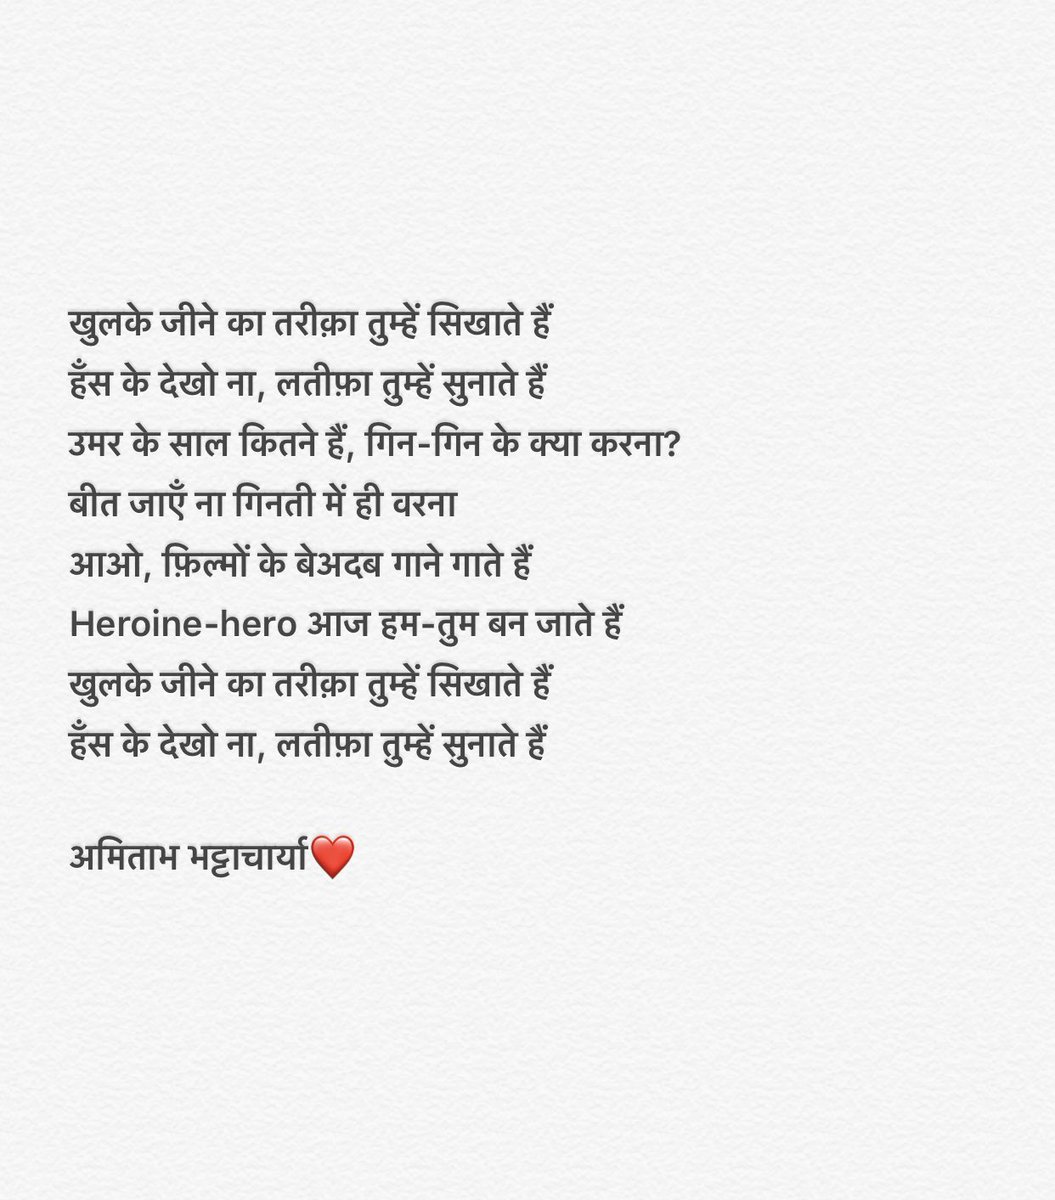 खुलके जीने का तरीक़ा तुम्हें सिखाते हैं
हँस के देखो ना, लतीफ़ा तुम्हें सुनाते हैं
उमर के साल कितने हैं, गिन-गिन के क्या करना?
बीत जाएँ ना गिनती में ही वरना
आओ, फ़िल्मों के बेअदब गाने गाते हैं
Heroine-hero आज हम-तुम बन जाते हैं
खुलके जीने का तरीक़ा तुम्हें सिखाते हैं
हँस के देखो ना, लतीफ़ा तुम्हें सुनाते हैं
अमिताभ भट्टाचार्या❤️